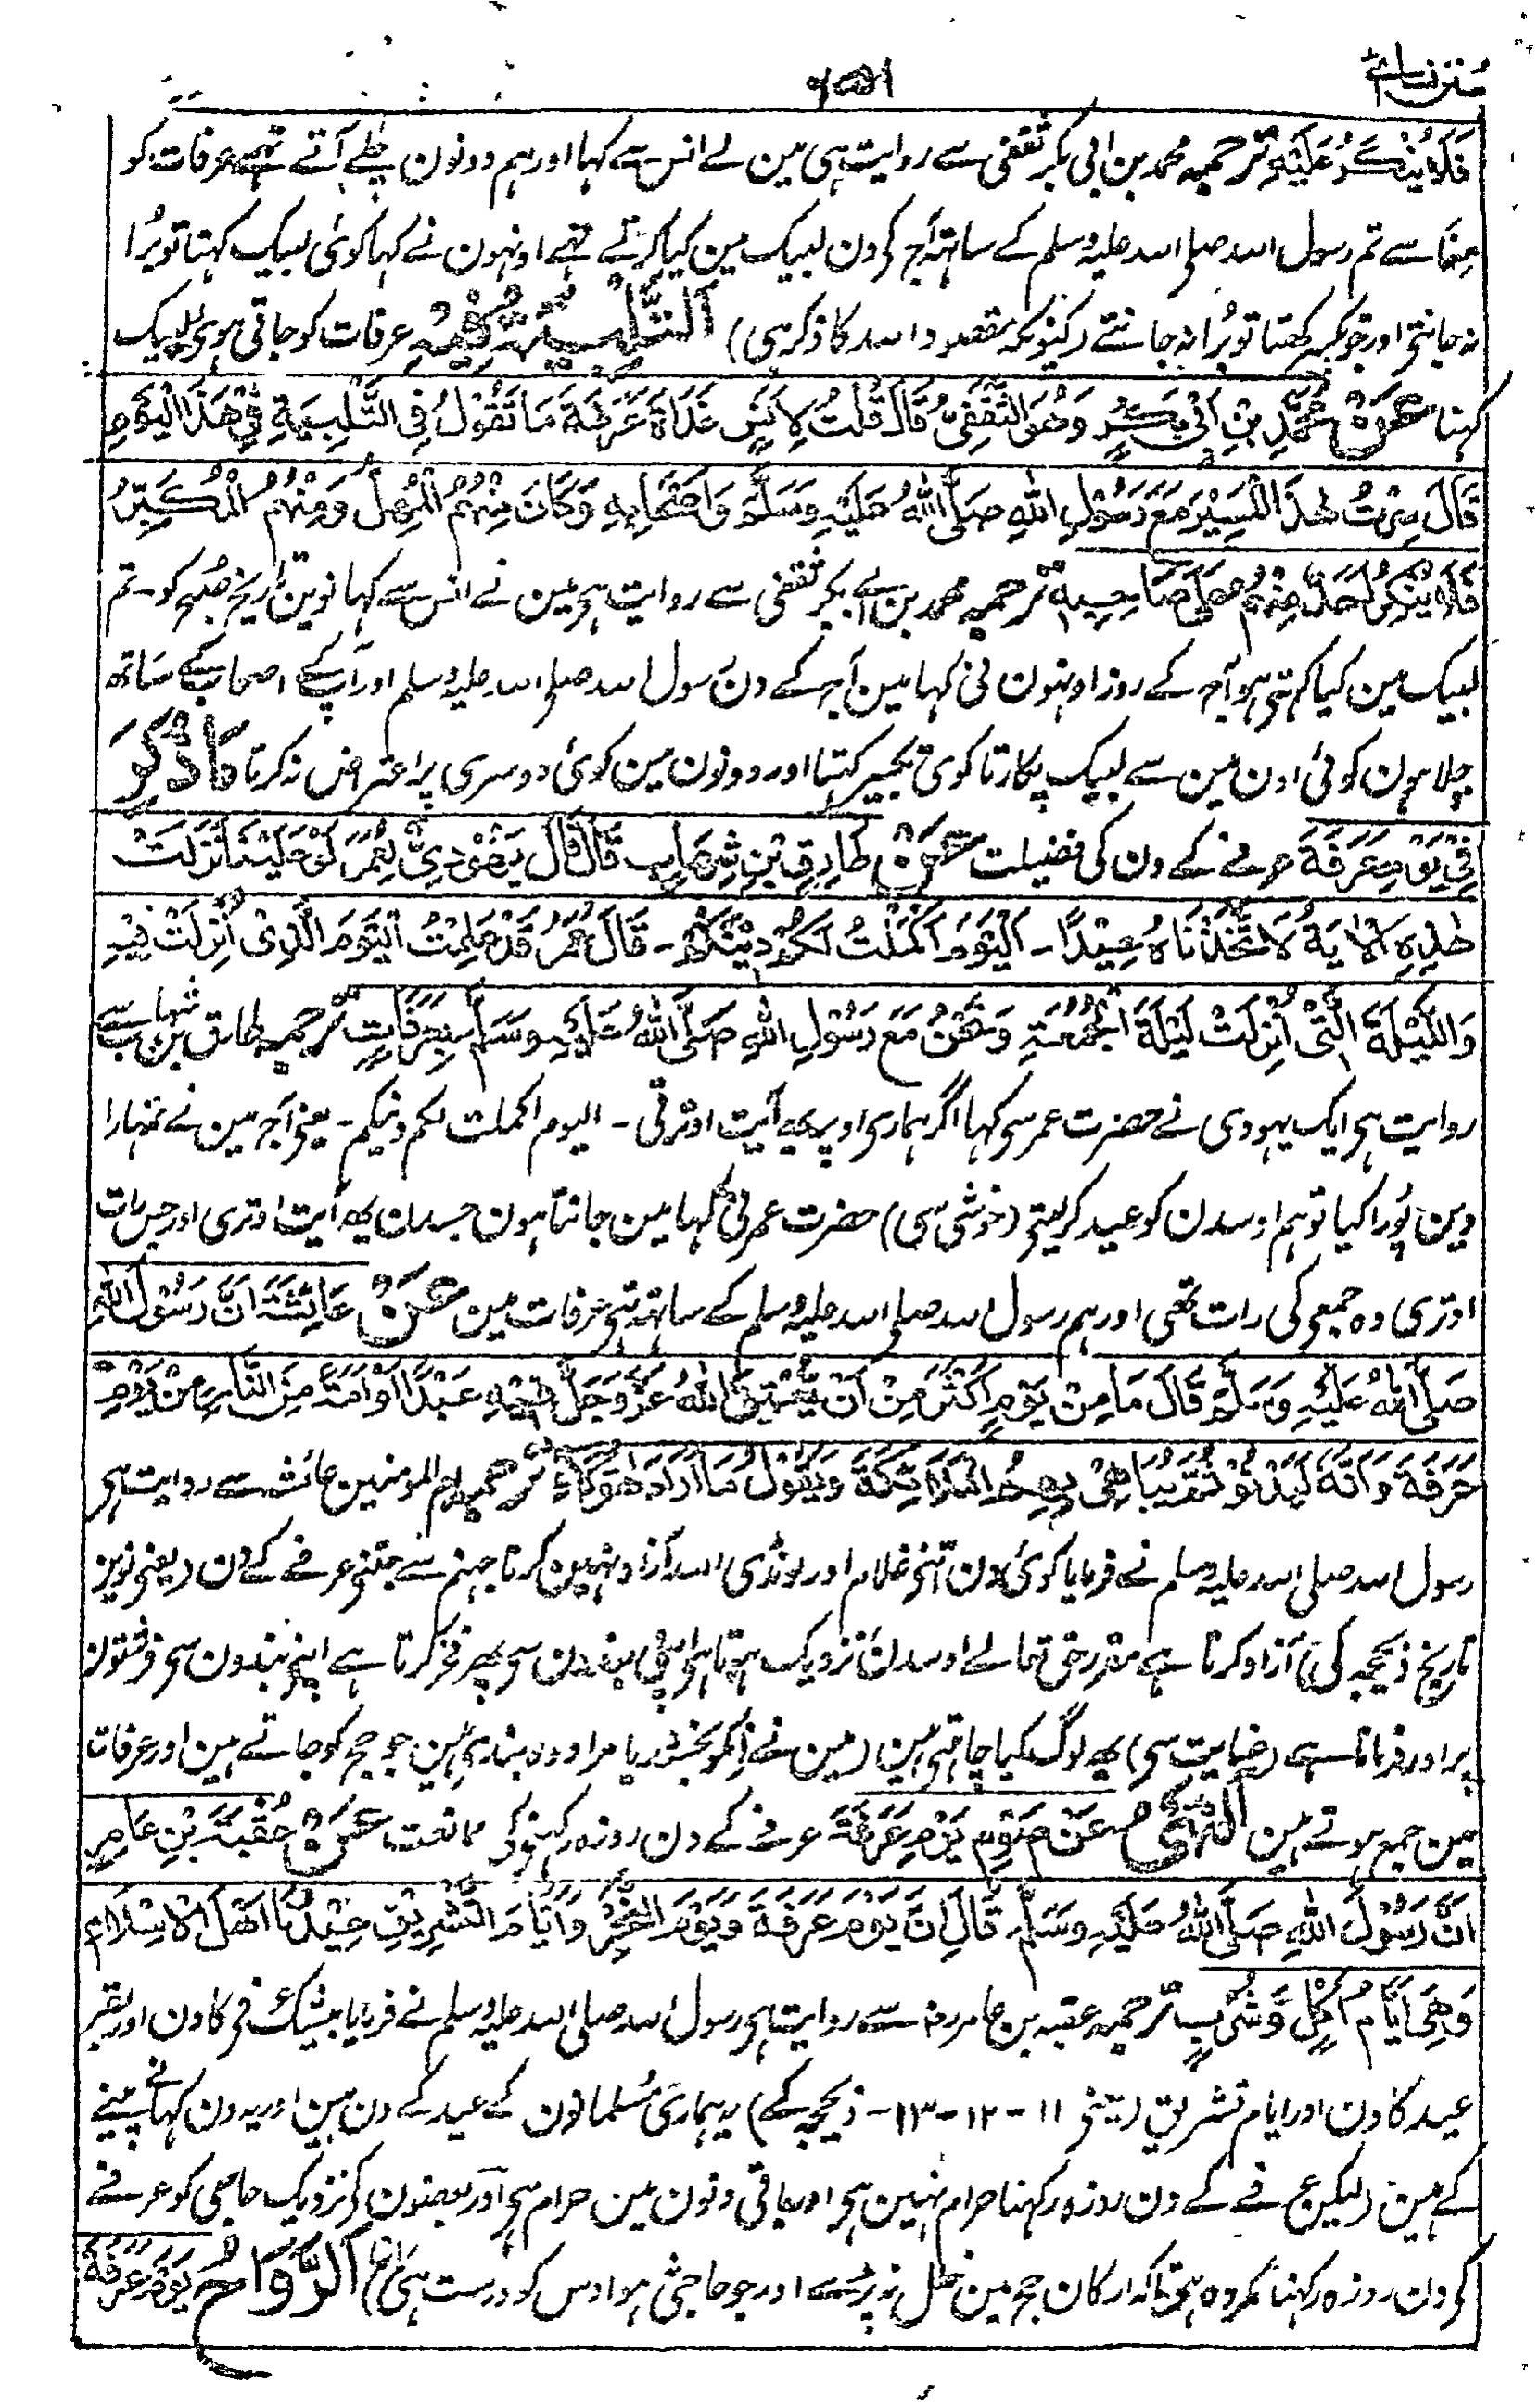 سنن نسائے
فَلَا يُنْكَرُ عَلَيْهِ ترجمہ محمد بن ابی بکر ثقفی سے روایت ہی مین نے انس سے کہا اور ہم دونون چلے آتے تھے عرفات کو
منا سے تم رسول اللہ صلی اللہ علیہ وسلم کے ساتھ آج کی دن لبیک مین کیا کرتے تھے اونہون نے کہا کوئی لبیک کہتا تو بُرا
نہ جانتی اور جو تکبیر کہتا تو بُرا نہ جانتے (کیونکہ مقصود اللہ کا ذکر ہی) اَلتَّلْبِيَةُ فِيْهِ عرفات کو جاتی ہوی لبیک
کہنا عَنْ مُحَمَّدِ بْنِ اَبِيْ بَكْرٍ وَهُوَ الثَّقَفِيُّ قَالَ قُلْتُ لِاَنَسٍ غَدَاةَ عَرَفَةَ مَا تَقُوْلُ فِي التَّلْبِيَةِ فِيْ هٰذَا الْيَوْمِ
قَالَ سِرْتُ هٰذَا الْمَسِيْرَ مَعَ رَسُوْلِ اللهِ صَلَّى اللهُ عَلَيْهِ وَسَلَّمَ وَاَصْحَابِهِ وَكَانَ مِنْهُمُ الْمُهِلُّ وَمِنْهُمُ الْمُكَبِّرُ
فَلَا يُنْكِرُ اَحَدٌ مِنْهُمْ عَلٰى صَاحِبِهِ ترجمہ محمد بن ابے بکر ثقفی سے روایت ہی مین نے انس سے کہا نوین تاریخ صُبح کو۔ تم
لبیک مین کیا کہتی ہو آج کے روز اونہون نی کہا مین آج کے دن رسول اللہ صلی اللہ علیہ وسلم اور آپ کے اصحاب کے ساتھ
چلا ہون کوئی اون مین سے لبیک پکارتا کوی تکبیر کہتا اور دونون مین کوئی دوسری پر اعتراض نہ کرتا مَا ذُكِرَ
فِيْ يَوْمِ عَرَفَةَ عرفے کے دن کی فضیلت عَنْ طَارِقِ بْنِ شِهَابٍ قَالَ قَالَ يَهُوْدِيٌّ لِعُمَرَ لَوْ عَلَيْنَا نَزَلَتْ
هٰذِهِ الْاٰيَةُ لَاتَّخَذْنَاهُ عِيْدًا - اَلْيَوْمَ اَكْمَلْتُ لَكُمْ دِيْنَكُمْ - قَالَ عُمَرُ قَدْ عَلِمْتُ الْيَوْمَ الَّذِيْ اُنْزِلَتْ فِيْهِ
وَاللَّيْلَةَ الَّتِيْ اُنْزِلَتْ لَيْلَةَ الْجُمُعَةِ وَنَحْنُ مَعَ رَسُوْلِ اللهِ صَلَّى اللهُ عَلَيْهِ وَسَلَّمَ بِعَرَفَاتٍ ترجمہ طارق بن شہاب سے
روایت ہی ایک یہودی نے حضرت عمر سی کہا اگر ہماری اوپر یہ آیت اوترتی - الیوم اکملت لکم دینکم - یعنی آج مین نے تمہارا
دین پُورا کیا تو ہم اوسدن کو عید کر لیتی (خوشی سی) حضرت عمر نی کہا مین جانتا ہون جسدن یہ آیت اوتری اور جس رات
اوتری وہ جمعی کی رات تھی اور ہم رسول اللہ صلی اللہ علیہ وسلم کے ساتھ تہی عرفات مین عَنْ عَائِشَةَ اَنَّ رَسُوْلَ اللهِ
صَلَّى اللهُ عَلَيْهِ وَسَلَّمَ قَالَ مَا مِنْ يَوْمٍ اَكْثَرَ مِنْ اَنْ يُّعْتِقَ اللهُ عَزَّ وَجَلَّ فِيْهِ عَبْدًا اَوْ اَمَةً مِنَ النَّارِ مِنْ يَوْمِ
عَرَفَةَ وَاَنَّهُ لَيَدْنُوْ ثُمَّ يُبَاهِيْ بِهِمُ الْمَلَائِكَةَ وَيَقُوْلُ مَا اَرَادَ هٰؤُلَاءِ ترجمہ ام المومنین عائشہ سے روایت ہی
رسول اللہ صلی اللہ علیہ وسلم نے فرمایا کوئی دن اتنی غلام اور لونڈی اللہ آزاد نہین کرتا جہنم سے جتنی عرفے کے دن (یعنی نوین
تاریخ ذیحجہ کی) آزاد کرتا ہے مقرر حق تعالے اوسدن نزدیک ہوتا ہی اپنی بندون سی پھر فخر کرتا ہے اپنی بندون سی فرشتون
پر اور فرماتا ہے (عنایت سی) یہ لوگ کیا چاہتی ہین (مین نے انکو بخشدیا مراد وہ بندی ہین جو حج کو جاتے ہین اور عرفات
مین جمع ہوتے ہین اَلنَّهْيُ عَنْ صَوْمِ يَوْمِ عَرَفَةَ عرفے کے دن روزہ رکہنی کی ممانعت عَنْ عُقْبَةَ بْنِ عَامِرٍ
اَنَّ رَسُوْلَ اللهِ صَلَّى اللهُ عَلَيْهِ وَسَلَّمَ قَالَ اِنَّ يَوْمَ عَرَفَةَ وَيَوْمَ النَّحْرِ وَاَيَّامَ التَّشْرِيْقِ عِيْدُنَا اَهْلَ الْاِسْلَامِ
وَهِيَ اَيَّامُ اَكْلٍ وَّشُرْبٍ ترجمہ عقبہ بن عامر رضہ سے روایت ہی رسول اللہ صلی اللہ علیہ وسلم نے فرمایا بیشک عرفی کا دن اور بقر
عید کا دن اور ایام تشریق (یعنی ۱۱ - ۱۲ - ۱۳ - ذیحجہ کے) یہ ہماری مُسلمانون کے عید کے دن ہین اور یہ دن کہانے پینے
کے ہین (لیکن عرفے کے دن روزہ رکہنا حرام نہین ہی اور باقی دنون مین حرام ہی اور بعضون کی نزدیک حاجی کو عرفے
کی دن روزہ رکہنا مکروہ ہی تاکہ ارکان حج مین خلل نہ پڑے اور جو حاجی نہو اوس کو درست ہی) اَلرَّوَاحُ يَوْمَ عَرَفَةَ